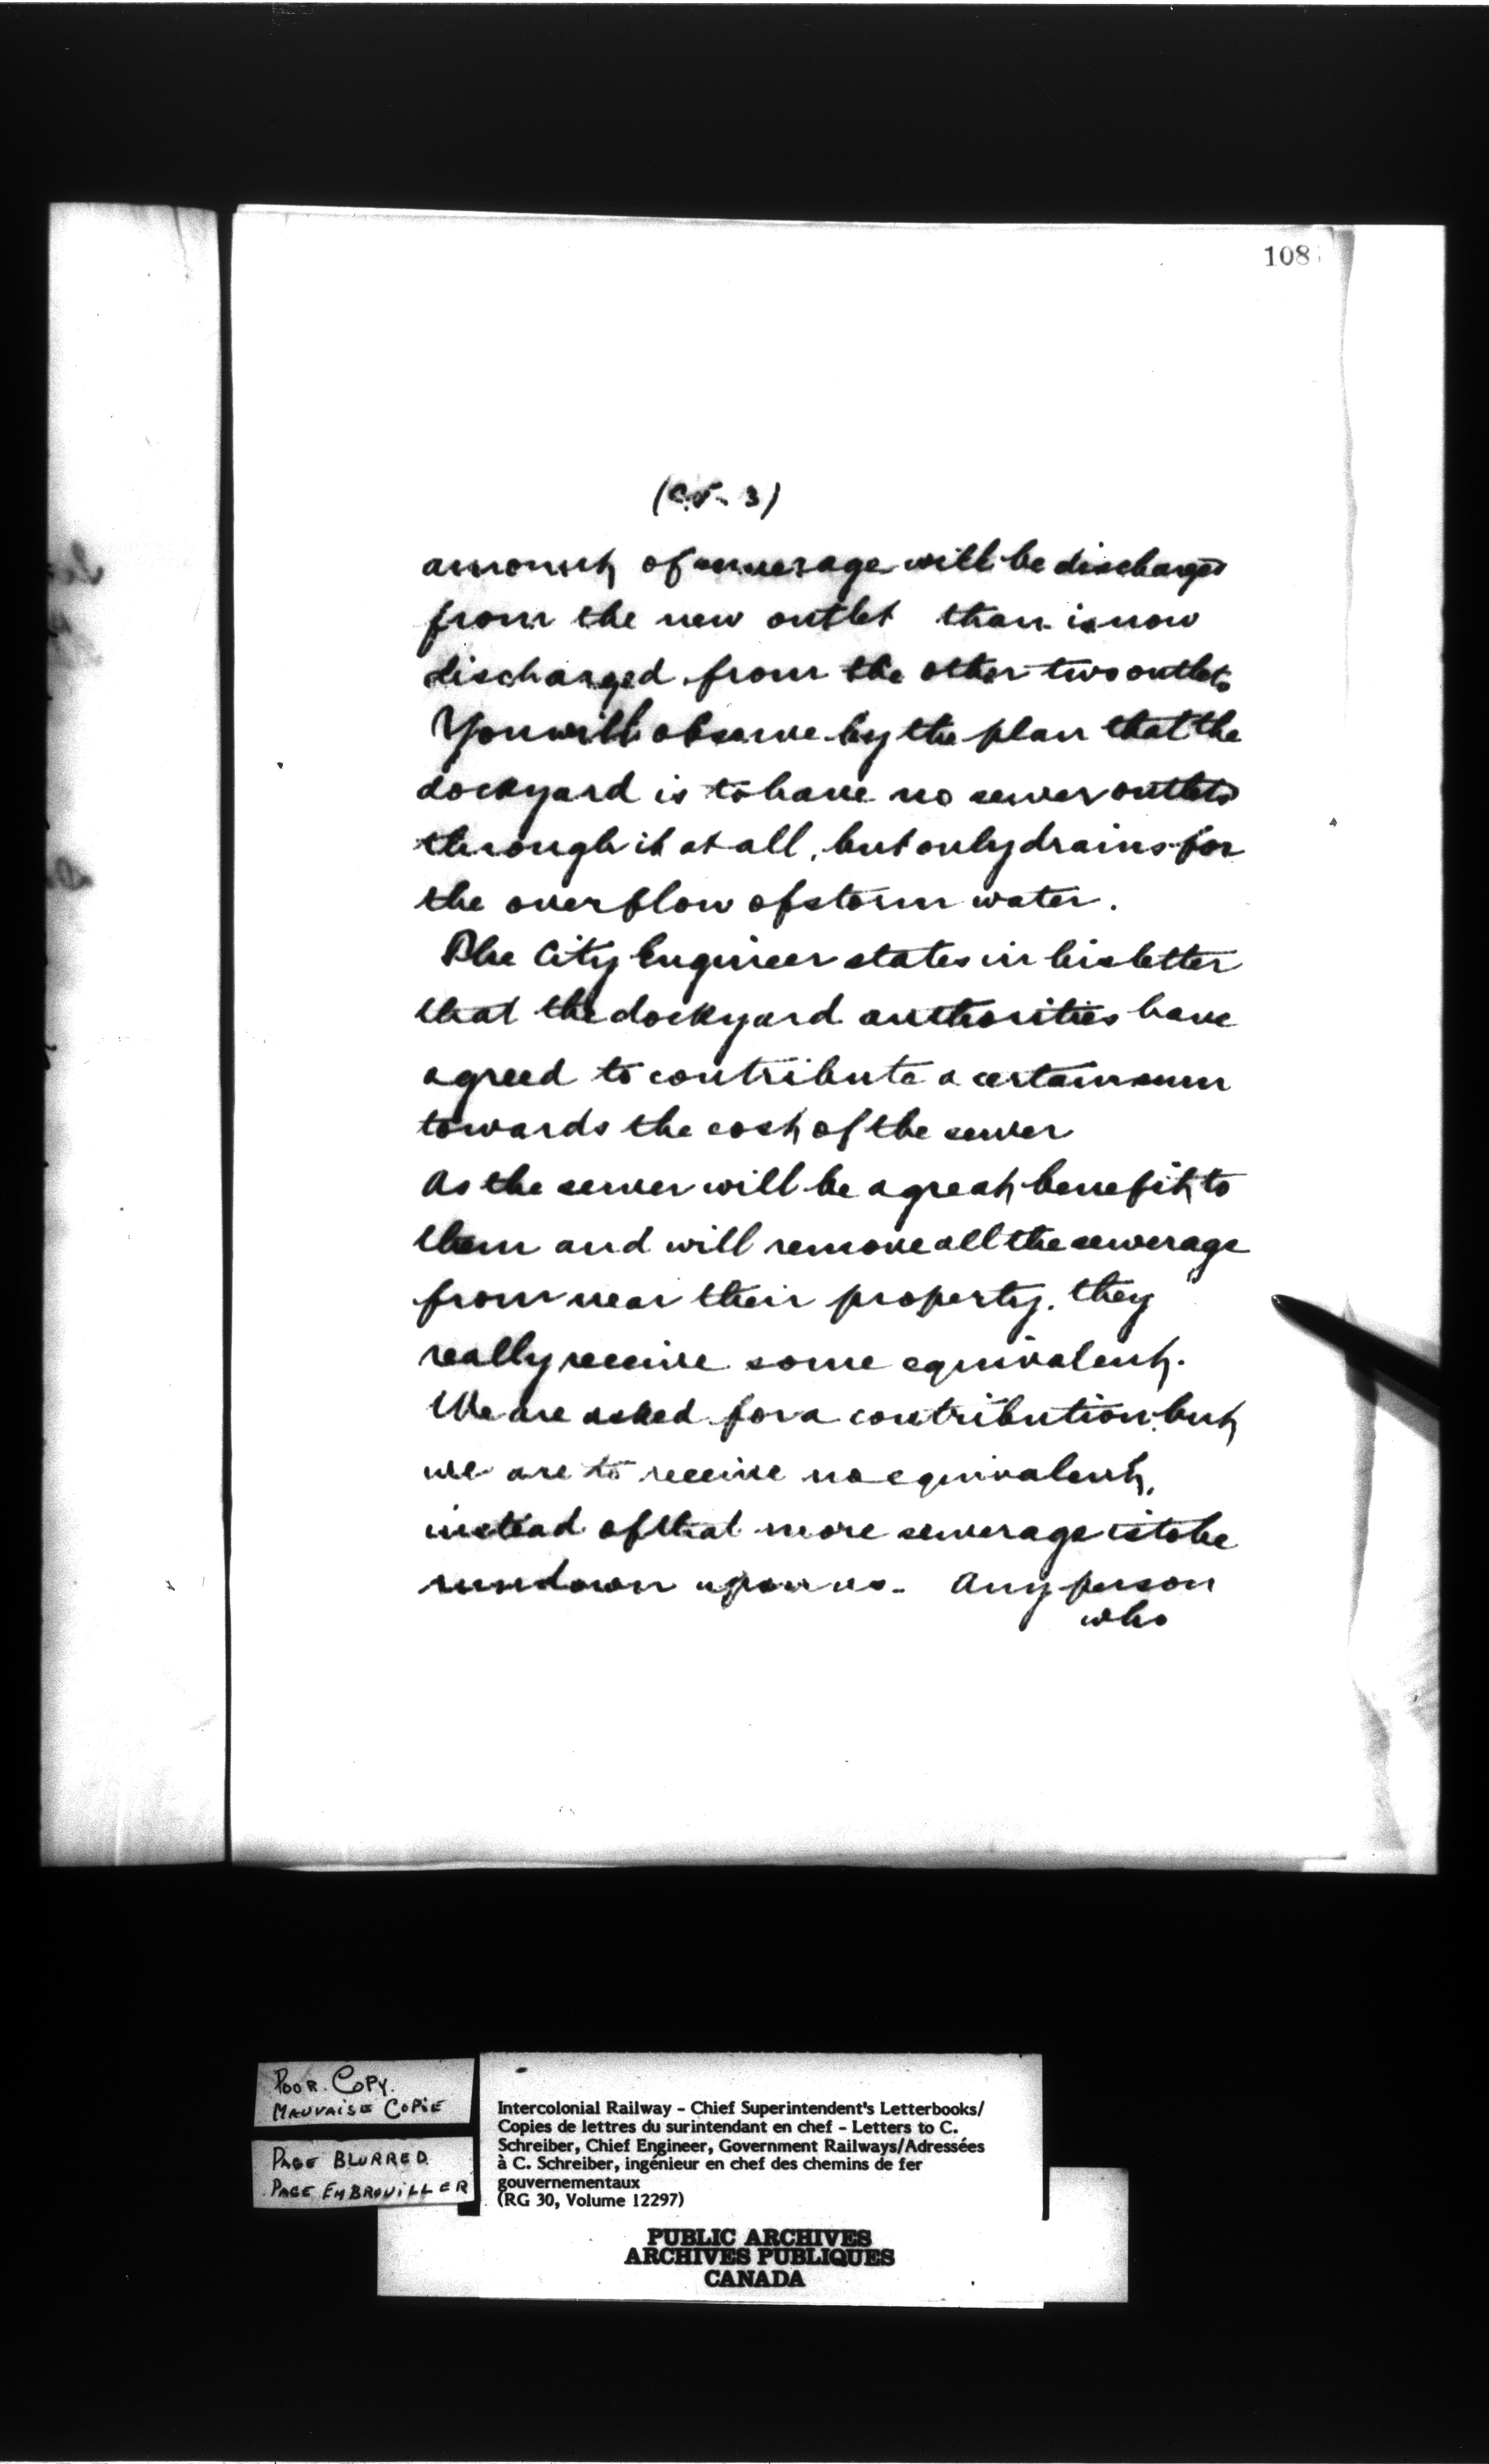 108
(C.S. 3)
amount of sewerage will be discharged
from the new outlet than is now
discharged from the other two outlets
You will observe by the plan that the
dockyard is to have no sewer outlets
through it at all, but only drains for
the overflow of storm water.
The City Engineer states in his letter
that the dockyard authorities have
agreed to contribute a certain sum
towards the cost of the sewer
As the sewer will be a great benefit to
them and will remove all the sewerage
from near their property, they
really receive some equivalent.
We are asked for a contribution, but
we are to receive no equivalent,
instead of that more sewerage is to be
run down upon us. Any person
who
POOR COPY.
MAUVAISE COPIE
PAGE BLURRED
PAGE EMBROUILLER
Intercolonial Railway - Chief Superintendent's Letterbooks/
Copies de lettres du surintendant en chef - Letters to C.
Schreiber, Chief Engineer, Government Railways/Adressées
à C. Schreiber, ingénieur en chef des chemins de fer
gouvernementaux
(RG 30, Volume 12297)
PUBLIC ARCHIVES
ARCHIVES PUBLIQUES
CANADA